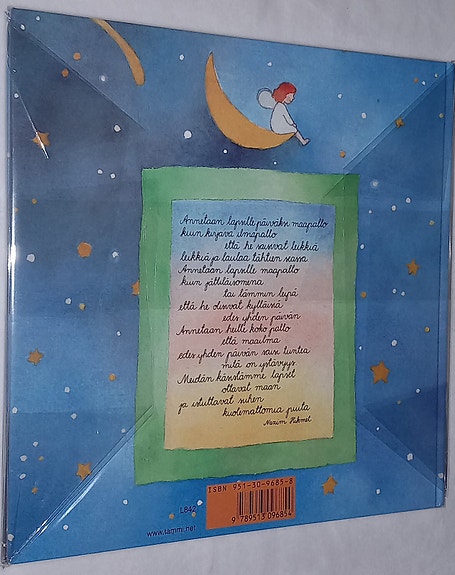 Annetaan lapsille päiväksi maapallo
kuin kirjava ilmapallo
että he saisivat leikkiä
leikkiä ja laulaa tähtien seassa
Annetaan lapsille maapallo
kuin jättiläisomena
tai lämmin leipä
että he olisivat kylläisiä
edes yhden päivän
Annetaan heille koko pallo
että maailma
edes yhden päivän saisi tuntea
mitä on ystävyys
Meidän käsistämme lapset
ottavat maan
ja istuttavat siihen
kuolemattomia puita
Nazim Hikmet
ISBN 951-30-9685-8
L84.2
www.tammi.net
9 789513 096854